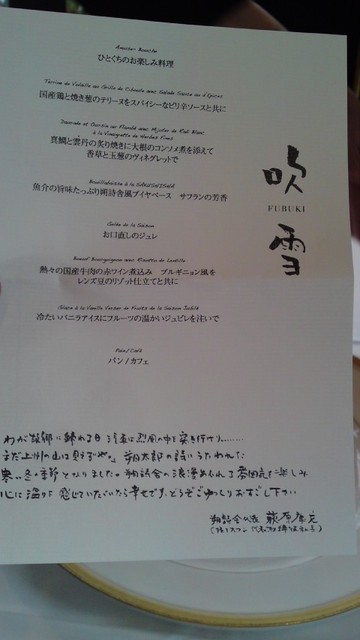 Amuser Bouche
ひとくちのお楽しみ料理
国産鶏と焼き葱のテリーヌをスパイシーなピリ辛ソースと共に
真鯛と雲丹の炙り焼きに大根のコンソメ煮を添えて
香草と玉葱のヴィネグレットで
魚介の旨味たっぷり朔詩舎風ブイヤベース サフランの芳香
Gelée de la Saison
お口直しのジュレ
Boeuf Bourguignon avec Risotto de Lentille
熱々の国産牛肉の赤ワイン煮込み ブルギニョン風を
レンズ豆のリゾット仕立てと共に
Glace à la Vanille Verser de Fruits de la Saison Jubilé
冷たいバニラアイスにフルーツの温かいジュビレを注いで
Pain/Café
パン/カフェ
吹雪
FUBUKI
わが故郷に帰れる日 汽車は烈風の中を突き行けり……
まだ上州の山は見えずや。 朔太郎の詩にうたわれた
寒い冬の季節となりました。朔詩舎の浪漫あふれる雰囲気を楽しみ
心に温かさ 感じていただいたら幸せです。どうぞごゆっくりおすごし下さい